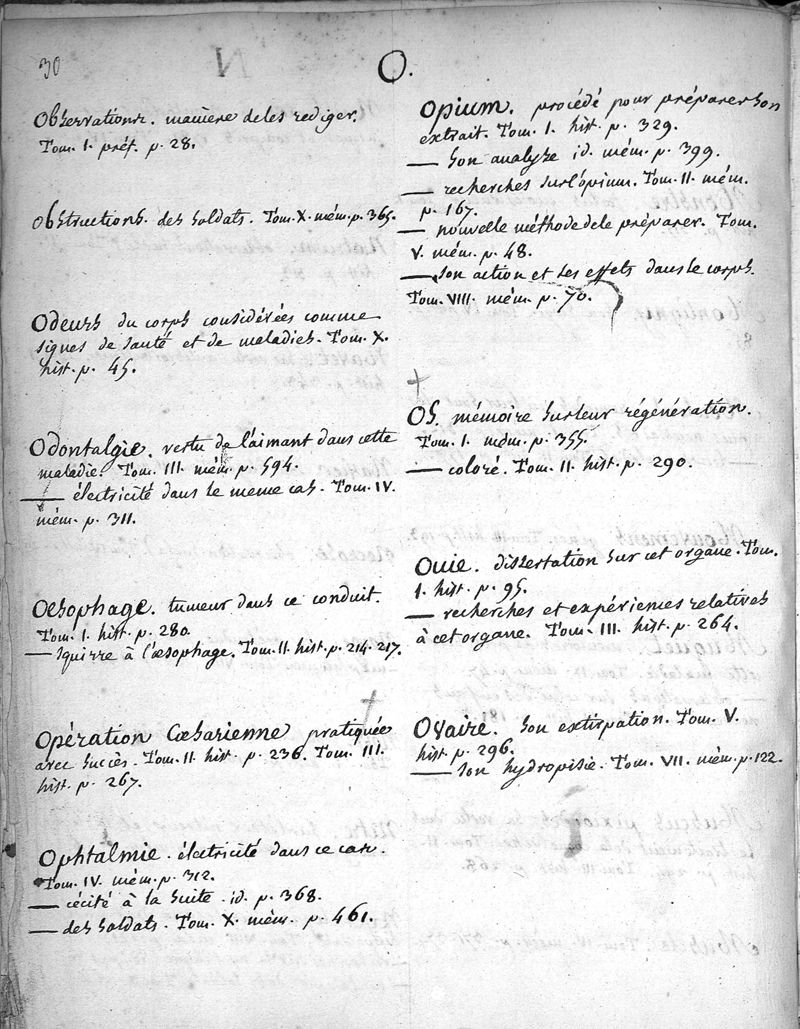 30
O.
Observations. manière de les rediger.
Tom. I. préf. p. 28.
Obstructions. des soldats. Tom. X. mém. p. 365.
Odeurs du corps considérées comme
signes de santé et de maladies. Tom. X.
hist. p. 45.
Odontalgie. vertu de l'aimant dans cette
maladie. Tom. III. mém. p. 594.
— électricité dans le meme cas. Tom. IV.
mém. p. 311.
Oesophage. tumeur dans ce conduit.
Tom. I. hist. p. 280.
— squirre à l'œsophage. Tom. II. hist. p. 214. 217.
Opération Cœsarienne pratiquée
avec succès. Tom. II. hist. p. 236. Tom. III.
hist. p. 267.
Ophtalmie. électricité dans ce cas.
Tom. IV. mém. p. 312.
— cécité à la suite. id. p. 368.
— des soldats. Tom. X. mém. p. 461.
Opium. procédé pour préparer son
extrait. Tom. I. hist. p. 329.
— son analyse id. mém. p. 399.
— recherches sur l'opium. Tom. II. mém.
p. 167.
— nouvelle méthode de le préparer. Tom.
V. mém. p. 48.
— son action et ses effets dans le corps.
Tom. VIII. mém. p. 70.
Os. mémoire sur leur régénération.
Tom. I. mém. p. 355.
— coloré. Tom. II. hist. p. 290.
Ouie. dissertation sur cet organe. Tom.
I. hist. p. 95.
— recherches et expériences relatives
à cet organe. Tom. III. hist. p. 264.
Ovaire. son extirpation. Tom. V.
hist. p. 296.
— son hydropisie. Tom. VII. mém. p. 122.